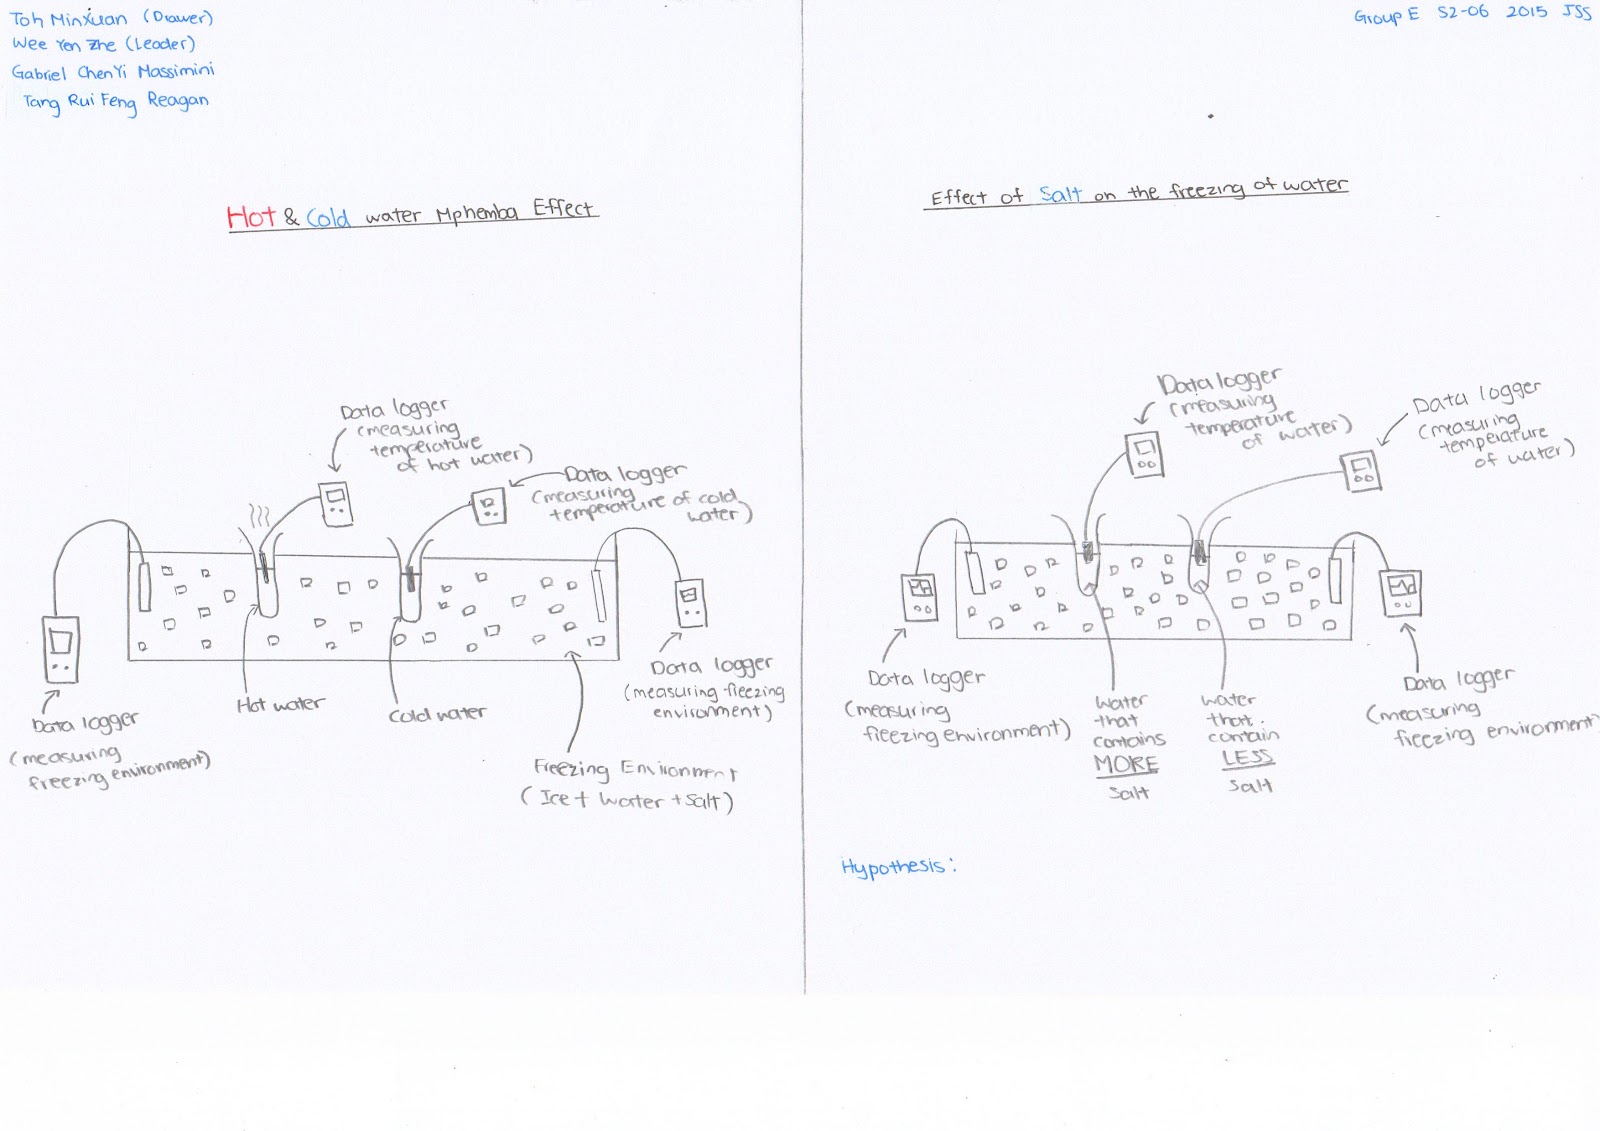 Toh MinXuan (Drawer)
Wee Yen Zhe (Leader)
Gabriel ChenYi Massimini
Tang Rui Feng Reagan
Group E S2-06 2015 JSS
Hot & Cold water Mphemba Effect
Data logger
(measuring
temperature
of hot water)
Data logger
(measuring
temperature of cold
water)
Data logger
(measuring
freezing environment)
Hot water
Cold water
Data logger
(measuring freezing
environment)
Freezing Environment
(Ice + Water + Salt)
Effect of Salt on the freezing of water
Data logger
(measuring
temperature
of water)
Data logger
(measuring
temperature
of water)
Data logger
(measuring
freezing environment)
Water
that
contains
MORE
Salt
Water
that
contain
LESS
Salt
Data logger
(measuring
freezing environment)
Hypothesis: